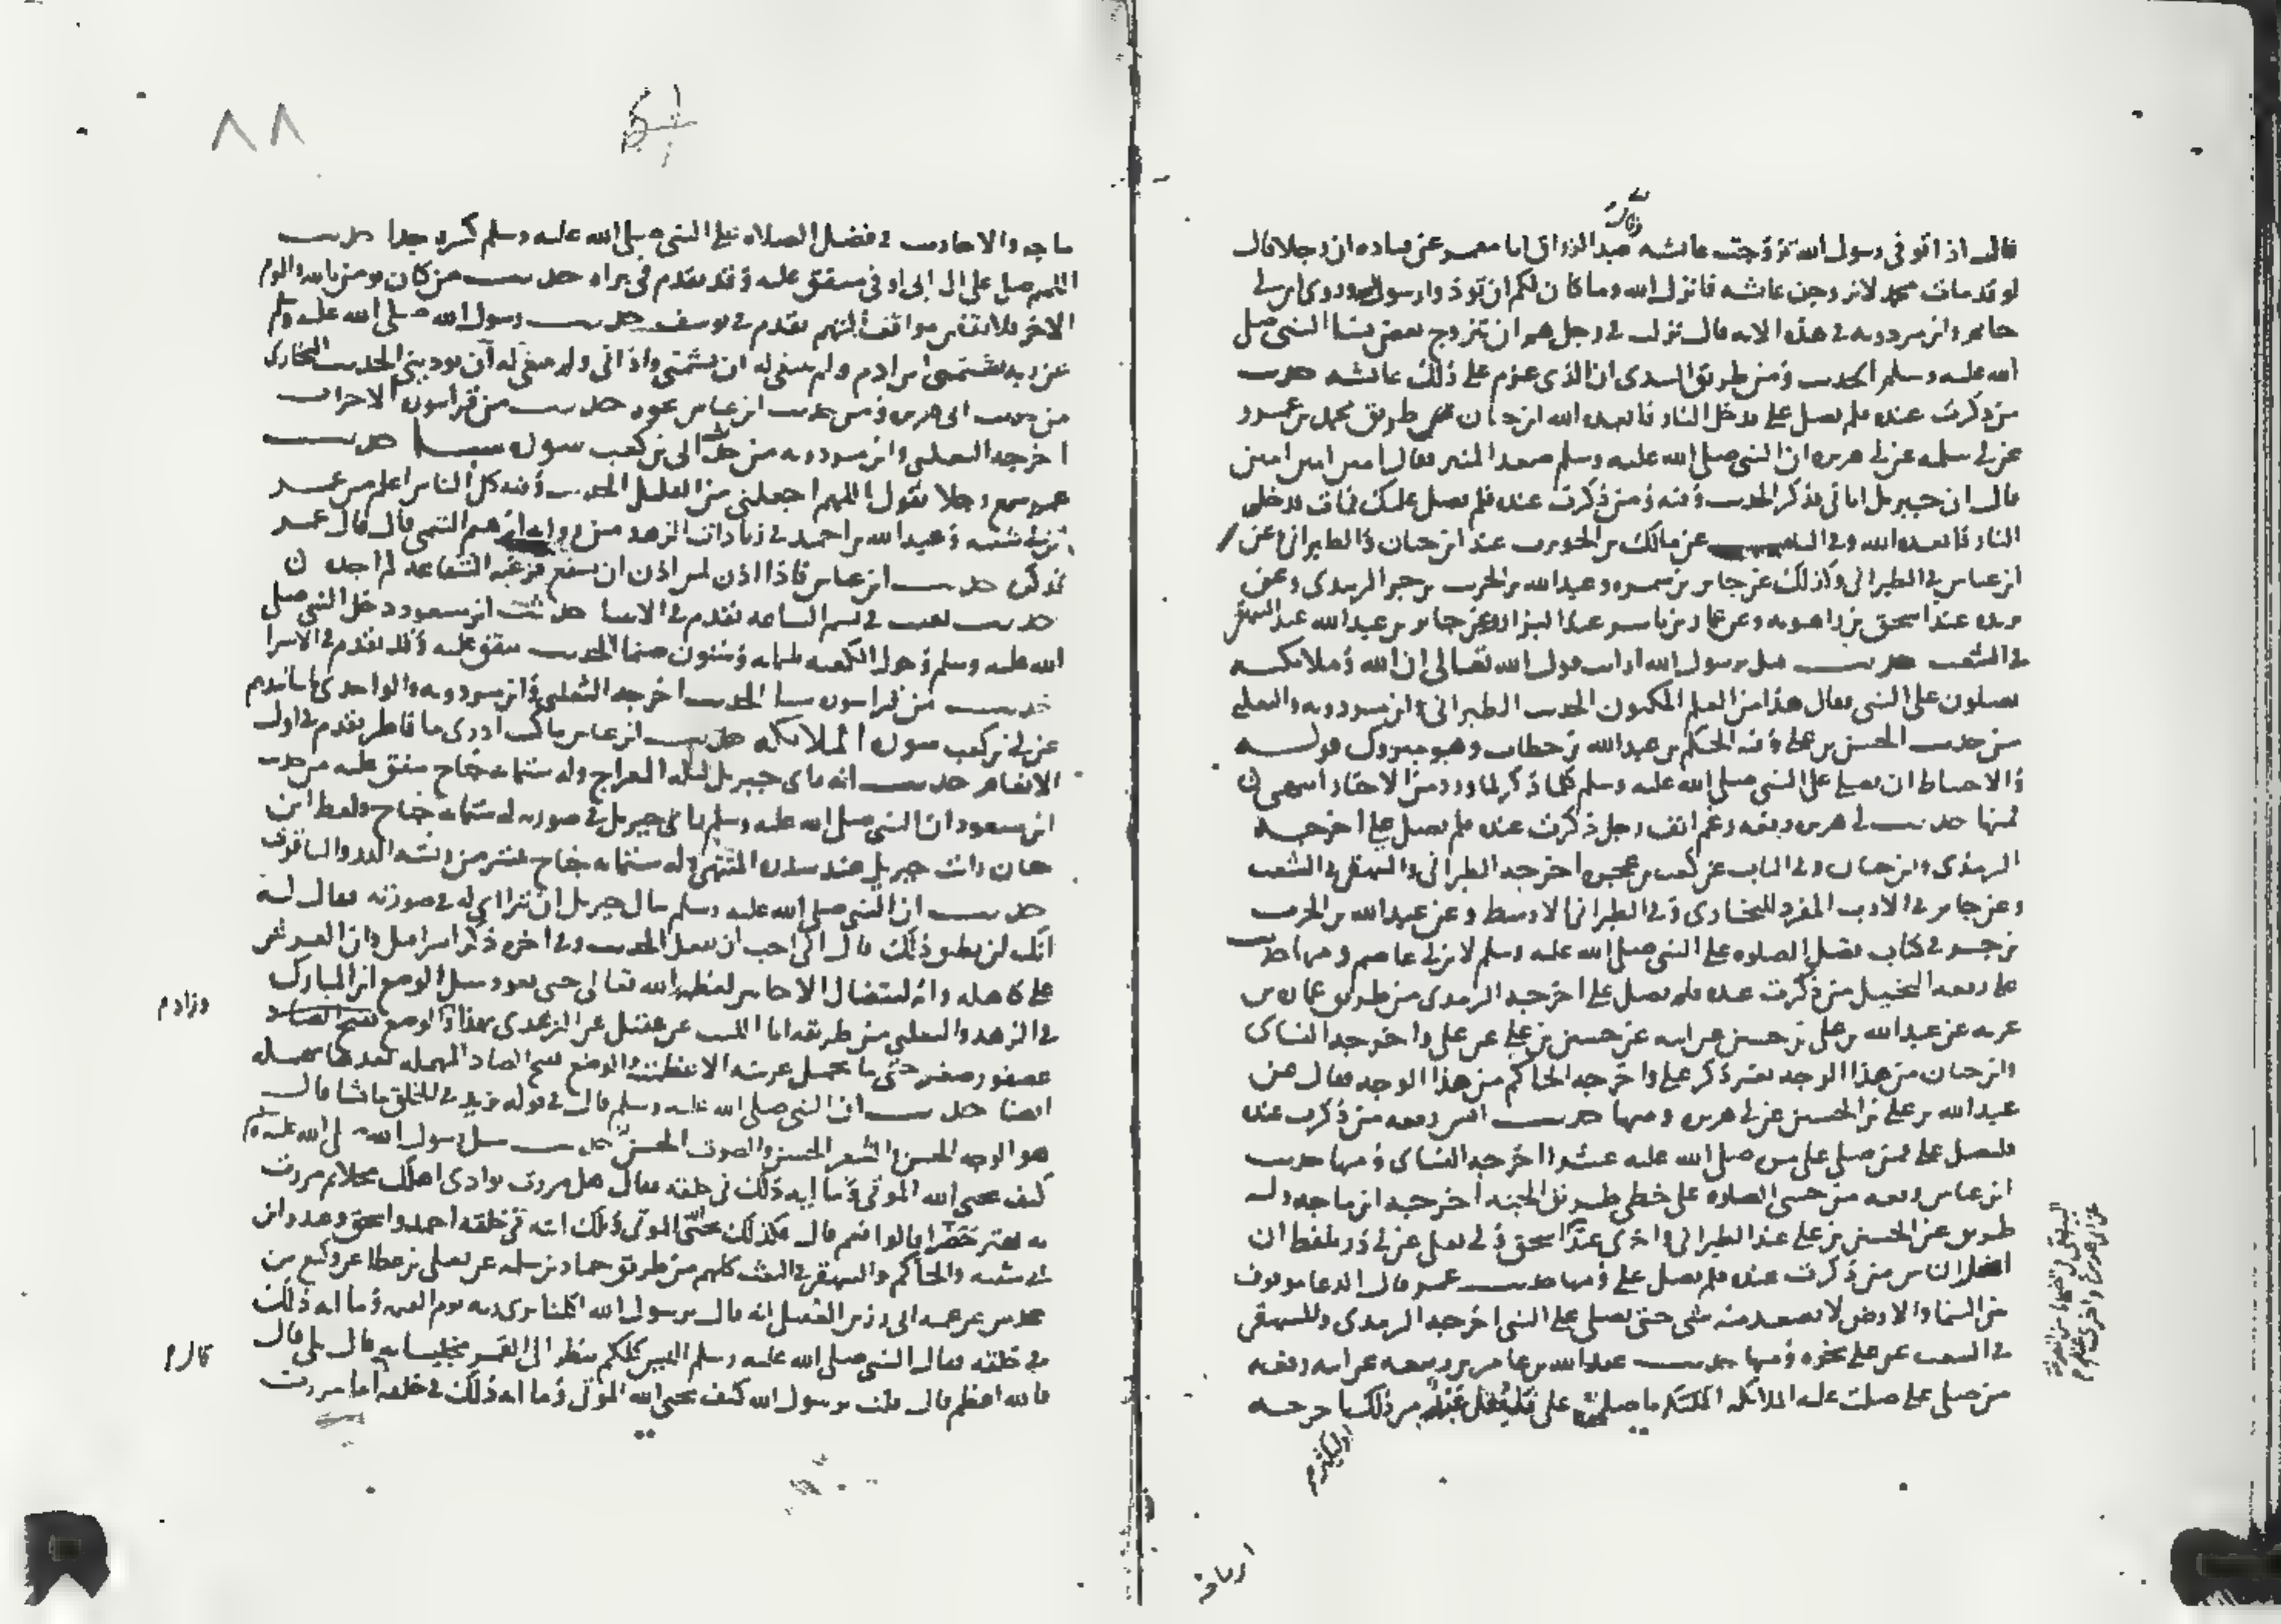 قال اذا توفي رسول الله تزوجت عائشه عبد الرزاق انا معمر عن قتاده ان رجلا قال
لو قد مات محمد لاتزوجن عائشه فانزل الله وما كان لكم ان توذوا رسول الله وروى ابن ابي
حاتم وابن مردويه في هذه الايه قال نزلت في رجل هم ان يتزوج بعض نسا النبي صلى
الله عليه وسلم الحديث ومن طريق السدي ان الذي عزم على ذلك عائشه حديث
من ذكرت عنده فلم يصل علي فدخل النار فابعده الله ابن حبان من طريق محمد بن عمرو
عن ابي سلمه عن ابي هريره ان النبي صلى الله عليه وسلم صعد المنبر فقال امين امين امين
قال ان جبريل اتاني فذكر الحديث وفيه ومن ذكرت عنده فلم يصل عليك فمات فدخل
النار فابعده الله وفي الباب عن مالك بن الحويرث عند ابن حبان والطبراني وعن
ابن عباس في الطبراني وكذلك عن جابر بن سمره وعبد الله بن الحرث بن جزء الزبيدي وعن
بريده عند اسحق بن راهويه وعن عمار بن ياسر عند البزار وعن جابر بن عبد الله عند البيهقي
في الشعب حديث قيل يرسول الله ارايت قول الله تعالى ان الله وملائكته
يصلون على النبي فقال هذا من العلم المكنون الحديث الطبراني وابن مردويه والثعلبي
من حديث الحسن بن علي وفيه الحكم بن عبد الله بن خطاف وهو متروك قوله
والاحتياط ان يصلي على النبي صلى الله عليه وسلم كلما ذكر لما ورد من الاخبار انتهى
فمنها حديث ابي هريره رفعه رغم انف رجل ذكرت عنده فلم يصل علي اخرجه
الترمذي وابن حبان وفي الباب عن كعب بن عجره اخرجه الطبراني والبيهقي في الشعب
وعن جابر في الادب المفرد للبخاري وفي الطبراني الاوسط وعن عبد الله بن الحرث
بن جزء في كتاب فضل الصلاه على النبي صلى الله عليه وسلم لابن ابي عاصم ومنها حديث
علي رفعه البخيل من ذكرت عنده فلم يصل علي اخرجه الترمذي من طريق عماره بن
غزيه عن عبد الله بن علي بن حسين عن ابيه عن حسين بن علي عن علي واخرجه النساى
وابن حبان من هذا الوجه بغير ذكر علي واخرجه الحاكم من هذا الوجه فقال عن
عبد الله بن علي بن الحسين عن ابي هريره ومنها حديث انس رفعه من ذكرت عنده
فليصل علي فمن صلى علي مره صلى الله عليه عشرا اخرجه النساى ومنها حديث
ابن عباس رفعه من نسي الصلاه علي خطي طريق الجنه اخرجه ابن ماجه وله
طريق عن الحسين بن علي عند الطبراني واخرى عند اسحق وابي يعلى عن ابي ذر بلفظ ان
ابخل الناس من ذكرت عنده فلم يصل علي ومنها حديث عمر قال الدعا موقوف
بين السما والارض لا يصعد منه شى حتى يصلى على النبي اخرجه الترمذي وللبيهقي
في الشعب عن علي نحوه ومنها حديث عبد الله بن عامر بن ربيعه عن ابيه رفعه
من صلى علي صلت عليه الملائكه ما صلى علي فليقل عبد من ذلك اخرجه
او ليكثر م
ابن ما
ماجه والاحاديث في فضل الصلاه على النبي صلى الله عليه وسلم كثيره جدا حديث
اللهم صل على ال ابي اوفى متفق عليه وقد تقدم في براه حديث من كان يومن بالله واليوم
الاخر فلا يقفن مواقف التهم تقدم في يوسف حديث رسول الله صلى الله عليه وسلم
عن ربه شتمني ابن ادم ولم ينبغي له ان يشتمني واذاني ولم ينبغي له ان يوذيني الحديث البخاري
من حديث ابي هريره ومن حديث ابن عباس نحوه حديث من قرا سوره الاحزاب
اخرجه الثعلبي وابن مردويه من حديث ابي بن كعب سوره سبا حديث
عمر سمع رجلا يقول اللهم اجعلني من القليل الحديث وفيه كل الناس اعلم من عمر
ابن ابي شيبه وعبد الله بن احمد في زيادات الزهد من روايه ابرهيم التيمي قال قال عمر
فذكره حديث ابن عباس فاذا اذن لمن اذن ان يشفع فزعته الشفاعه لم اجده
حديث بعثت في نسم الساعه تقدم في الانبيا حديث ابن مسعود دخل النبي صلى
الله عليه وسلم وحول الكعبه ثلثمايه وستون صنما الحديث متفق عليه وقد تقدم في الاسرا
حديث من قرا سوره سبا الحديث اخرجه الثعلبي وابن مردويه والواحدي باسانيدهم
عن ابي بن كعب سوره الملائكه حديث ابن عباس ما كنت ادري ما فاطر تقدم في اول
الانعام حديث انه راى جبريل ليله المعراج وله ستمايه جناح متفق عليه من حديث
ابن مسعود ان النبي صلى الله عليه وسلم راى جبريل في صورته له ستمايه جناح ولفظ ابن
حبان رايت جبريل عند سدره المنتهى وله ستمايه جناح ينتثر من ريشه الدر والياقوت
حديث ان النبي صلى الله عليه وسلم سال جبريل ان يتراى له في صورته فقال له
انك لن تطيق ذلك قال اني احب ان تفعل الحديث وفي اخره ذكر اسرافيل وان العرش
على كاهله وانه ليتضال الاحايين لعظمه الله تعالى حتى يعود مثل الوصع ابن المبارك
في الزهد والثعلبي من طريقه انا الليث عن عقيل عن الزهري بهذا والوصع بفتح الصاد
عصفور صغير حتى ما يحمل عرشه الا عظمته والوصع بفتح الصاد المهمله بعدها مهمله
ايضا حديث ان النبي صلى الله عليه وسلم قال في قوله يزيد في الخلق ما يشا قال
هو الوجه الحسن والشعر الحسن والصوت الحسن حديث سئل رسول الله صلى الله عليه وسلم
كيف يحيي الله الموتى وما ايه ذلك في خلقه فقال هل مررت بوادي اهلك محلا ثم مررت
به يهتز خضرا قالوا نعم قال فكذلك يحيي الله الموتى وتلك ايته في خلقه احمد واسحق وعبد وابن
ابي شيبه والحاكم والبيهقي في البعث كلهم من طريق حماد بن سلمه عن يعلى بن عطا عن وكيع بن
عدس عن عمه ابي رزين العقيلي انه قال يرسول الله اكلنا يرى ربه يوم القيمه وما ايه ذلك
في خلقه فقال النبي صلى الله عليه وسلم اليس كلكم ينظر الى القمر مخليا به قال بلى قال
فالله اعظم قال قلت يرسول الله كيف يحيي الله الموتى وما ايه ذلك في خلقه اما مررت
وزاد م
قال م
٨٨